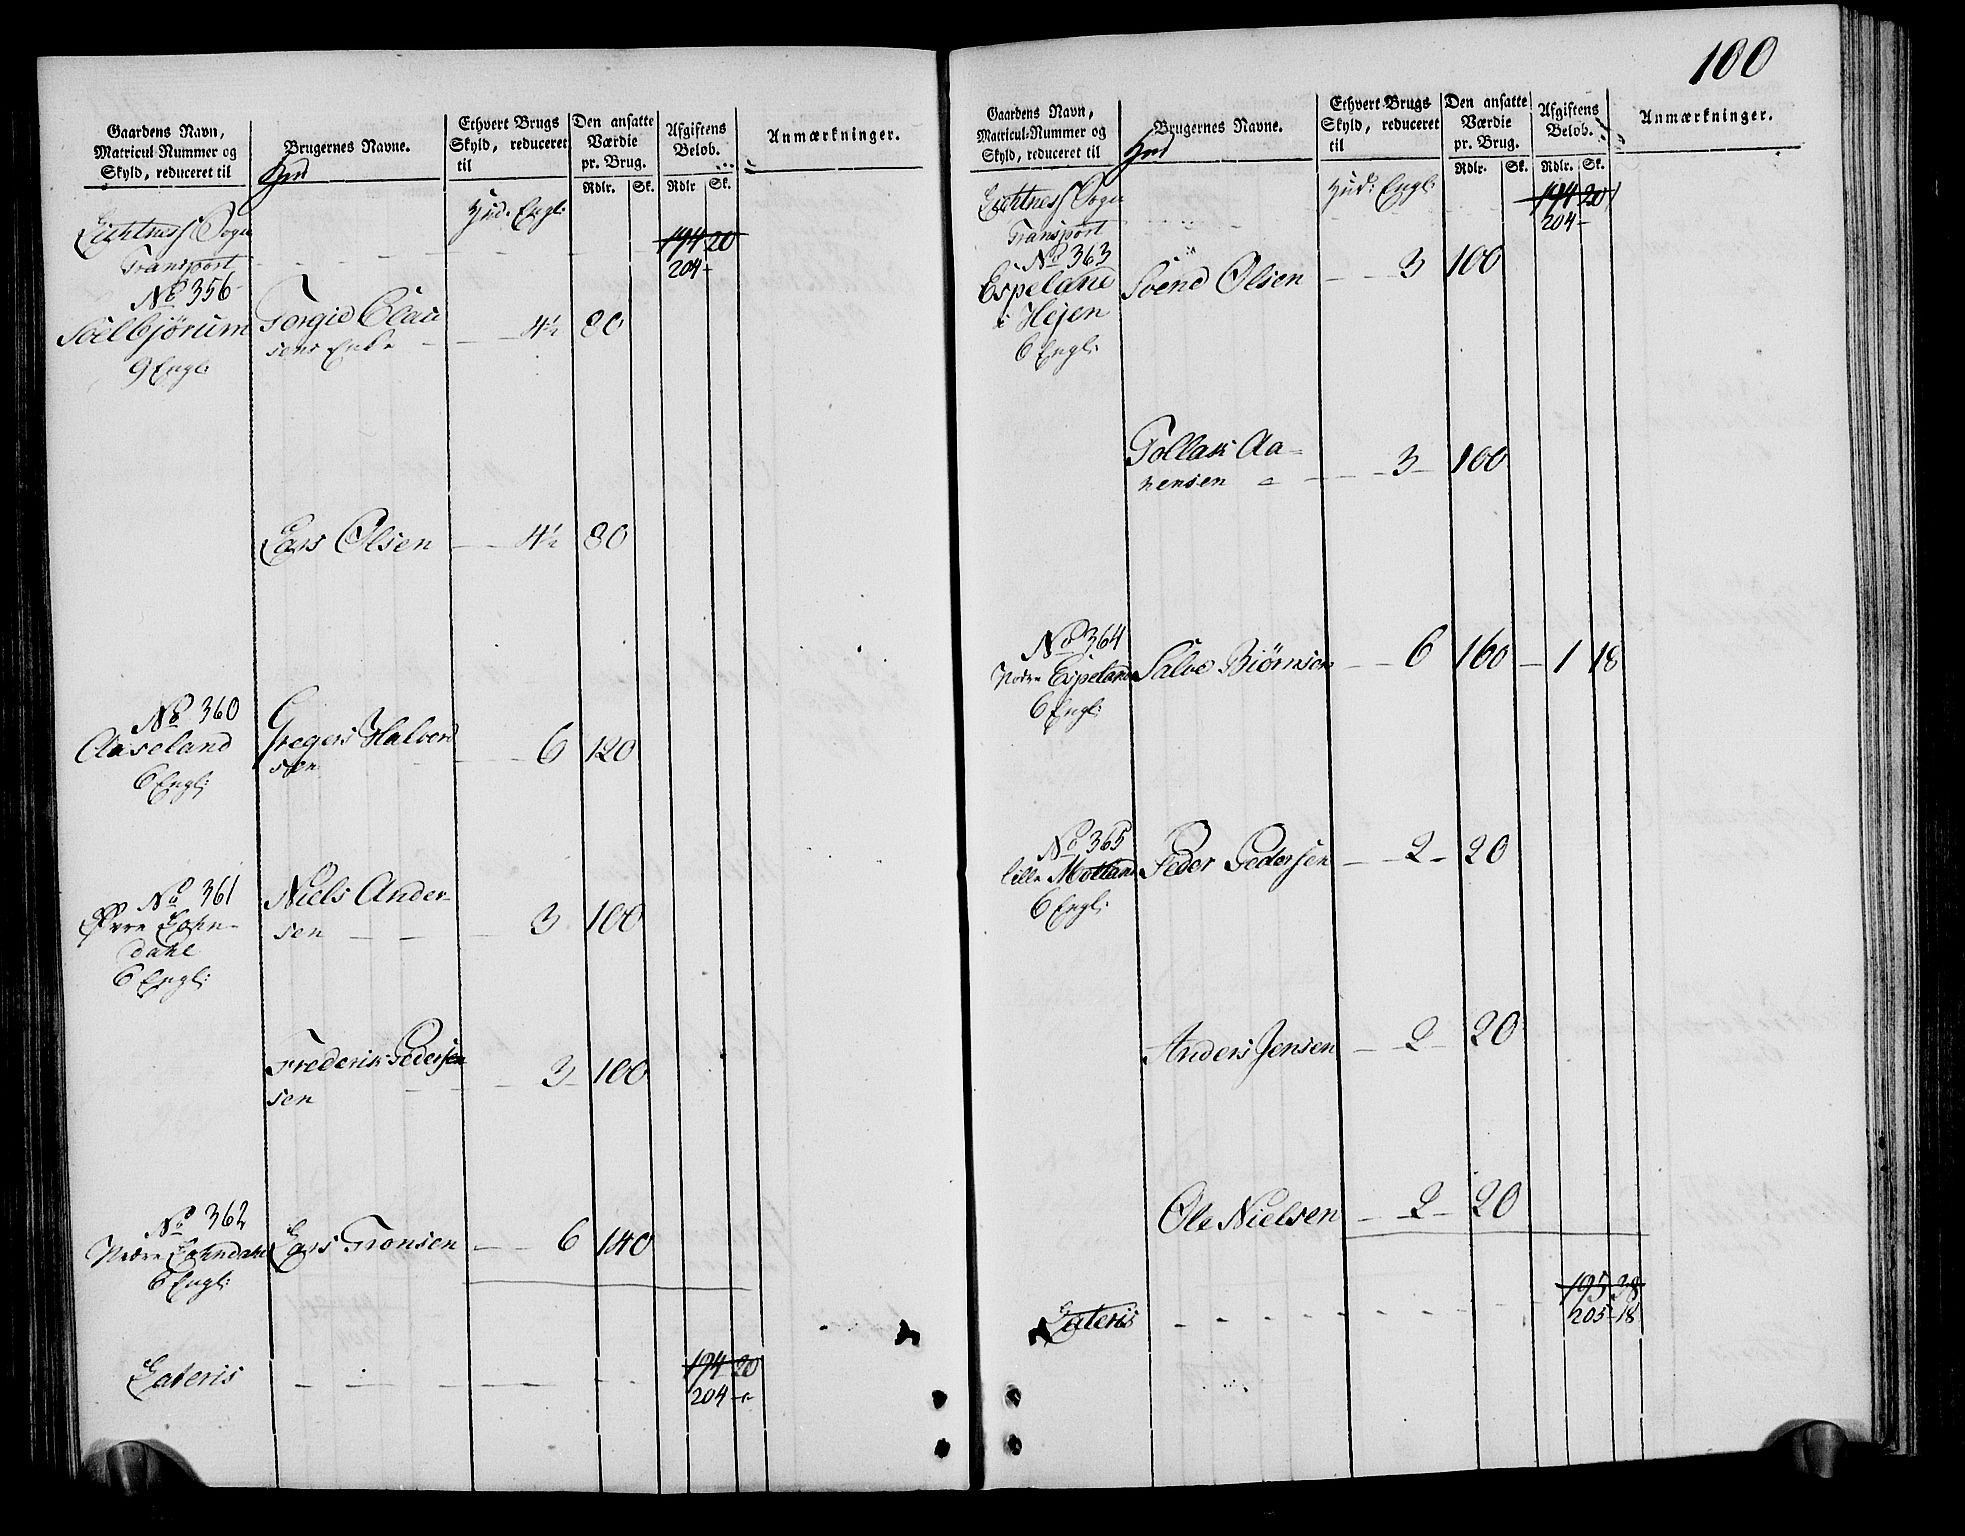 Gaardens Navn,
Matricul-Nummer og
Skyld, reduceret til
Brugernes Navne.
Ethvert Brugs
Skyld, reduceret
til
Den ansatte
Værdie
pr. Brug.
Rdlr. Sk.
Afgiftens
Belob.
Rdlr Sk.
Anmærkninger.
Hud: Engl:
Sogn
Transport - - - 194 20
204 -
No 356
Torgie Clau
sens Enke - 4½ 80
9 Engl:
Lars Olsen - 4½ 80
No 360
Aaseland Gregers Halvord
sen - 6 120
6 Engl:
No 361
Niels Ander-
Øvre sen - - 3 100
dahl
6 Engl:
Frederik Pedersen
sen - 3 100
No 362
Nedre Lars Tronsen - 6 140
6 Engl:
Lateris - - - 194 20
204 -
100
Gaardens Navn,
Matricul-Nummer og
Skyld, reduceret til
Brugernes Navne.
Ethvert Brugs
Skyld, reduceret
til
Den ansatte
Værdie
pr. Brug.
Rdlr. Sk.
Afgiftens
Belob.
Rdlr. Sk.
Anmærkninger.
Hud: Engl:
Sogn 194 20
Transport 204 -
No 363
Espeland Svend Olsen - 3 100
i Hejen
6 Engl:
Tollak Aa-
nensen - 3 - 100
No 364
Nedre Espeland Salve Biørnsen - 6 160 - 1 18
6 Engl:
No 365
Lille Motland Peder Pedersen - 2 - 20
6 Engl:
Anders Jensen - 2 - 20
Ole Nielsen - 2 - 20
195 38
Lateris - - - 205 - 18